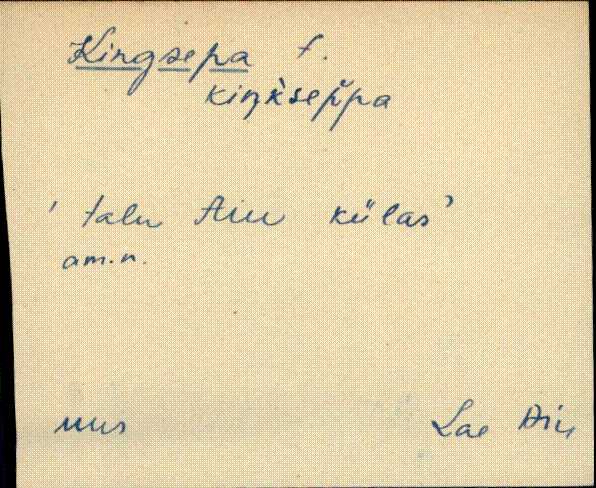 Kingsepa t.
kiŋ̀ksep̆pa
' talu Aiu külas'
am.n.
uus
Lae Aiu